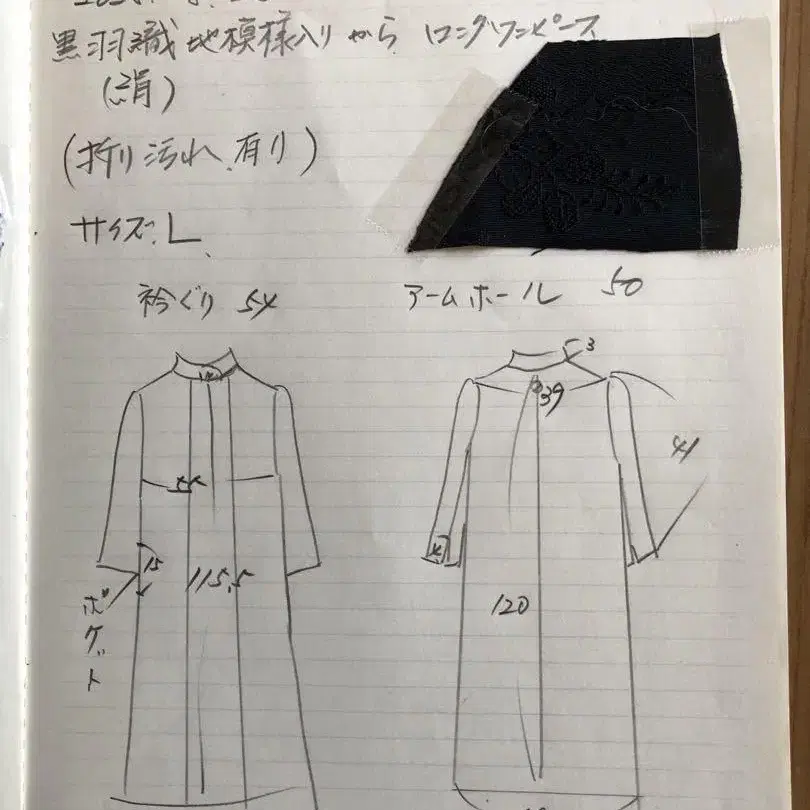 黒羽織地模様入りから ロングワンピース
(絹)
(折り汚れ有り)
サイズ L
衿ぐり 54
アームホール 50
3
39
41
55
15
115.5
ポケット
120